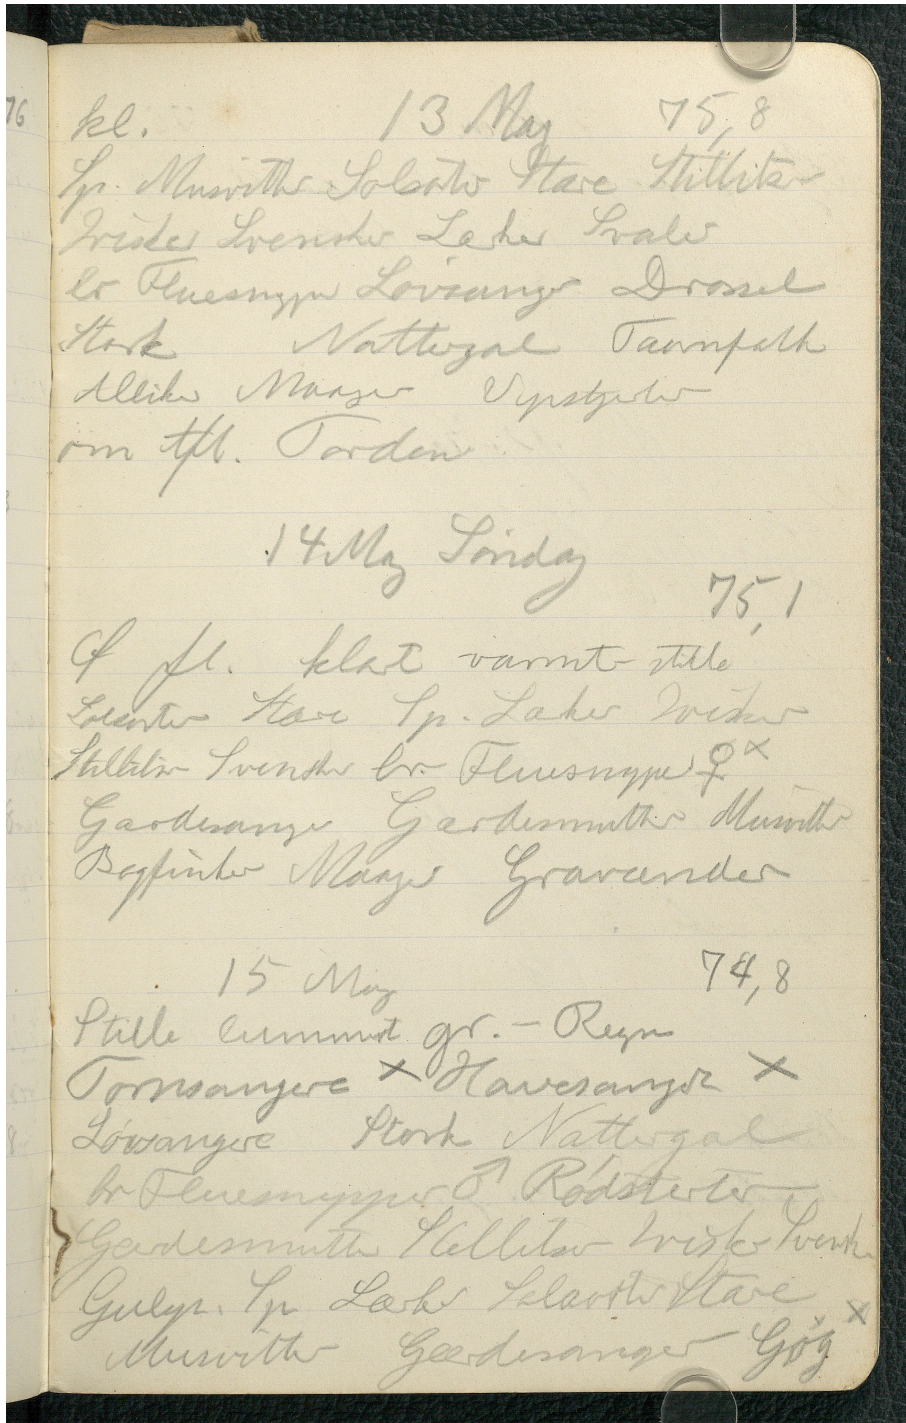 76
kl. 13 May 75,8
Sp. Musvitter Solsorter Stære Stillitser
Irisker Svensker Lærker Svaler
br Fluesnapper Løvsanger Drossel
Stork Nattergal Taarnfalk
Alliker Maager Vipstjerter
om fl. Torden
14 May Søndag
75,1
Ø fl. klart varmt stille
Solsorter Stære Sp. Lærker Irisker
Stillitser Svensker br. Fluesnapper ♀ x
Gærdesanger Gærdesmutter Musvitter
Bogfinker Maager Gravænder
15 May 74,8
Stille lummert gr. – Regn
Tornsangere x Havesangere x
Løvsangere Stork Nattergal
br Fluesnapper ♂ Rødstjerter
Gærdesmutter Stillitser Irisker Svensker
Gulsp. Sp Lærker Solsorter Stære
Musvitter Gærdesanger Gøg x